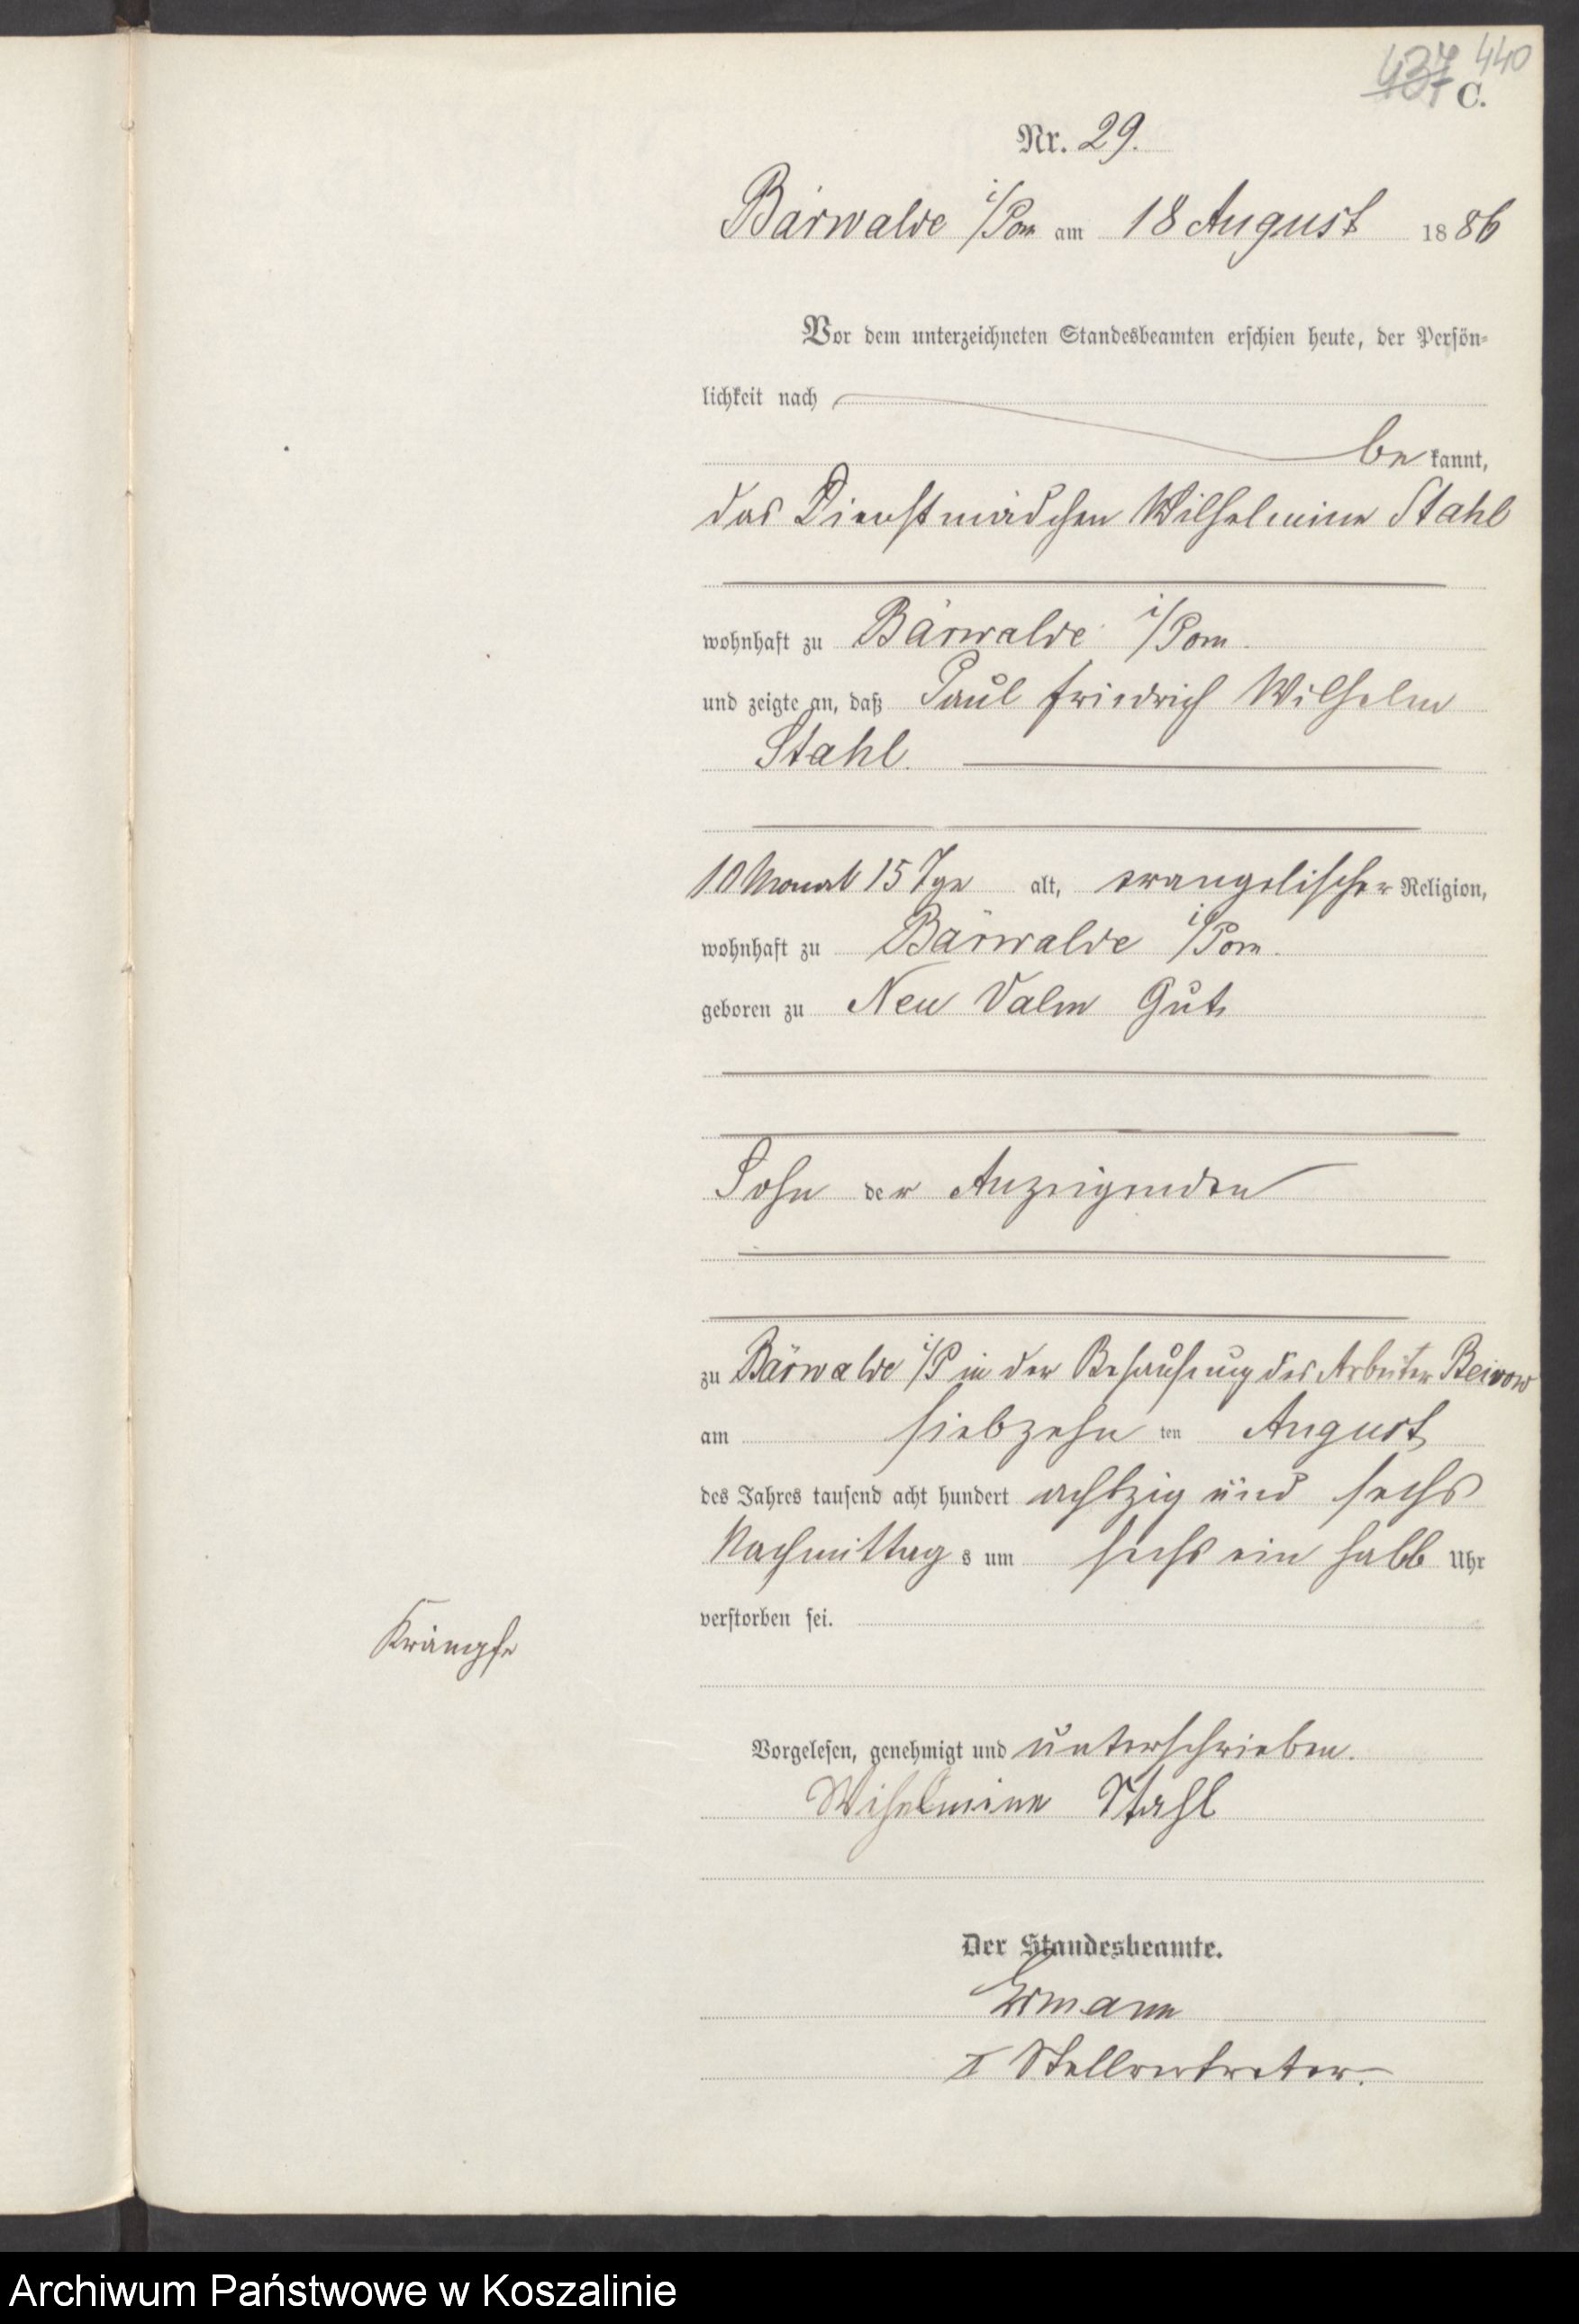 437 440
C.
Nr. 29.
Bärwalde i/Pom am 18 August 1886
Vor dem unterzeichneten Standesbeamten erschien heute, der Persön-
lichkeit nach
be kannt,
das Dienstmädchen Wilhelmine Stahl
wohnhaft zu Bärwalde i/Pom.
und zeigte an, daß Paul Friedrich Wilhelm
Stahl.
10 Monat 15 Tge alt, evangelischer Religion,
wohnhaft zu Bärwalde i/Pom.
geboren zu Neu Valm Gut
Sohn der Anzeigenden
zu Bärwalde i/P in der Behausung des Arbeiter
am siebzehn ten August
des Jahres tausend acht hundert achtzig und sechs
Nachmittag s um sechs ein halb Uhr
verstorben sei.
Krämpfe
Vorgelesen, genehmigt und unterschrieben.
Wihelmine Stahl
Der Standesbeamte.
Ermann
II Stellvertreter.
Archiwum Państwowe w Koszalinie